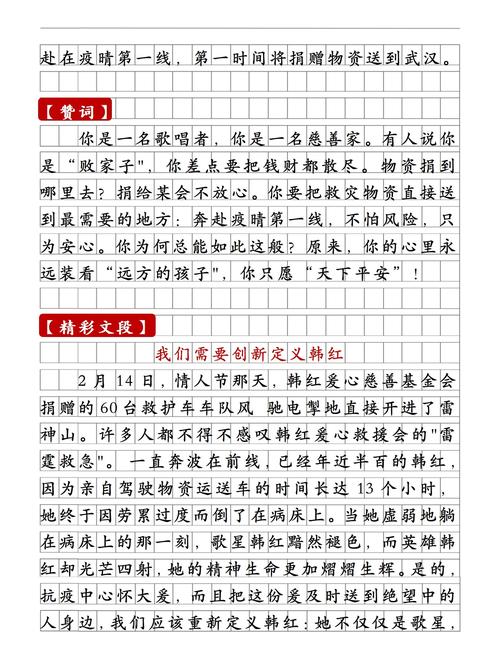 赴在疫晴第一线，第一时间将捐赠物资送到武汉。
【赞词】
你是一名歌唱者，你是一名慈善家。有人说你
是“败家子"，你差点要把钱财都散尽。物资捐到
哪里去？捐给某会不放心。你要把救灾物资直接送
到最需要的地方：奔赴疫晴第一线，不怕风险，只
为安心。你为何总能如此这般？原来，你的心里永
远装看“远方的孩子"，你只愿“天下平安”！
【精彩文段】
我们需要创新定义韩红
2月14日，情人节那天，韩红爱心慈善基金会
捐赠的60台救护车车队风 驰电掣地直接开进了雷
神山。许多人都不得不感叹韩红爱心救援会的"雷
霆救急"。一直奔波在前线，已经年近半百的韩红，
因为亲自驾驶物资运送车的时间长达13个小时，
她终于因劳累过度而倒了在病床上。当她虚弱地躺
在病床上的那一刻，歌星韩红黯然褪色，而英雄韩
红却光芒四射，她的精神生命更加熠熠生辉。是的，
抗疫中心怀大爱，而且把这份爱及时送到绝望中的
人身边，我们应该重新定义韩红：她不仅仅是歌星，